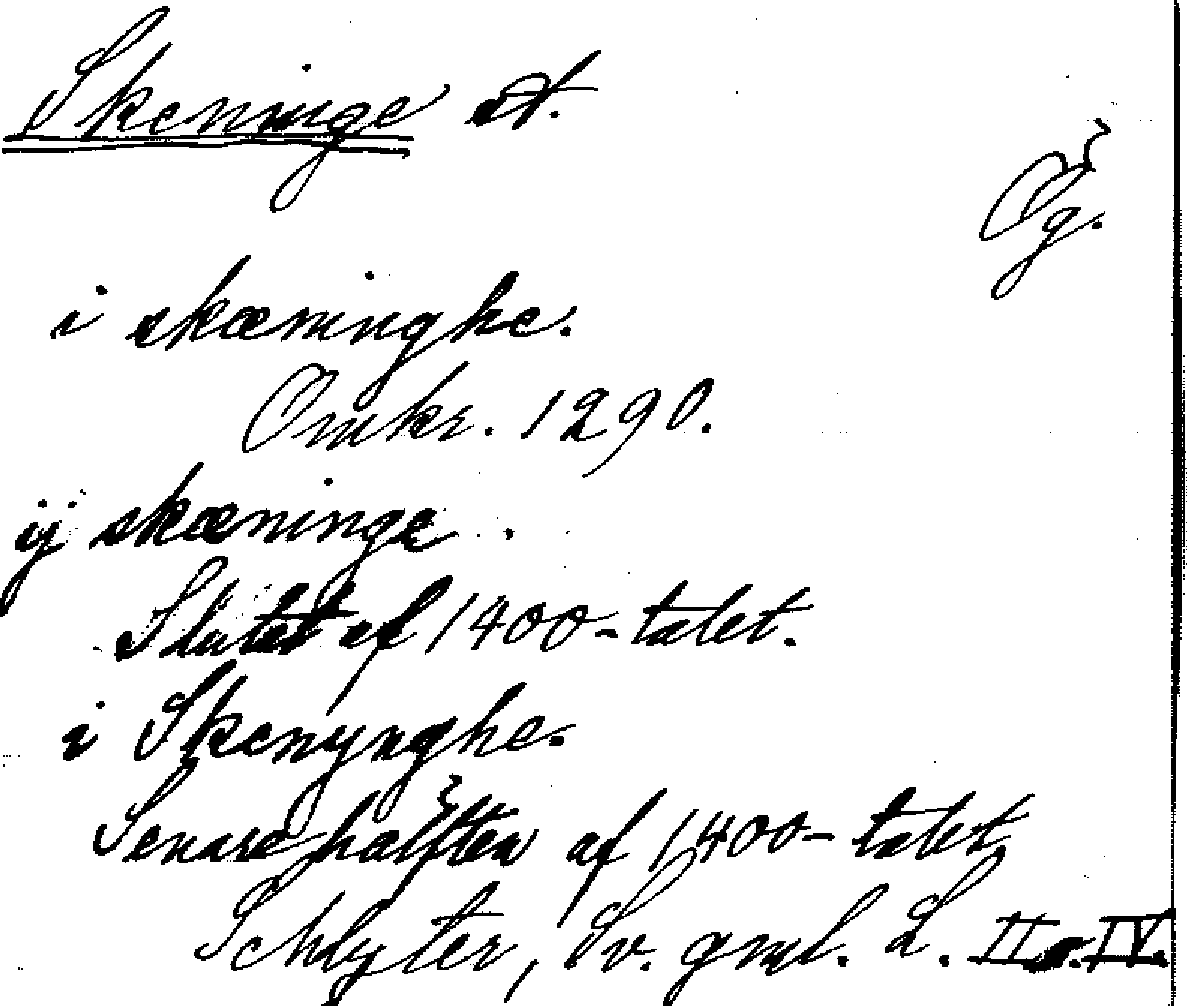 Skeninge st.
Ög.
i skæninghe.
Omkr. 1290.
ij skæninge.
Slutet af 1400-talet.
i Skenynghe.
Senare hälften af 1400-talet.
Schlyter, Sv. gml. L. II o. IV.